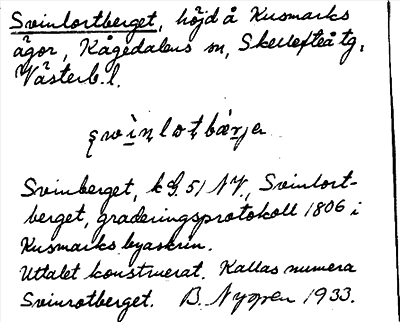 Svinlortberget, höjd å Kusmarks
ägor, Kågedalens sn, Skellefteå tg,
Västerb. l.
Svinberget, kg. 51 NV, Svinlort-
berget, graderingsprotokoll 1806 i
Kusmarks byaskrin.
Uttalet konstruerat. Kallas numera
Svinrotberget. B. Nygren 1933.